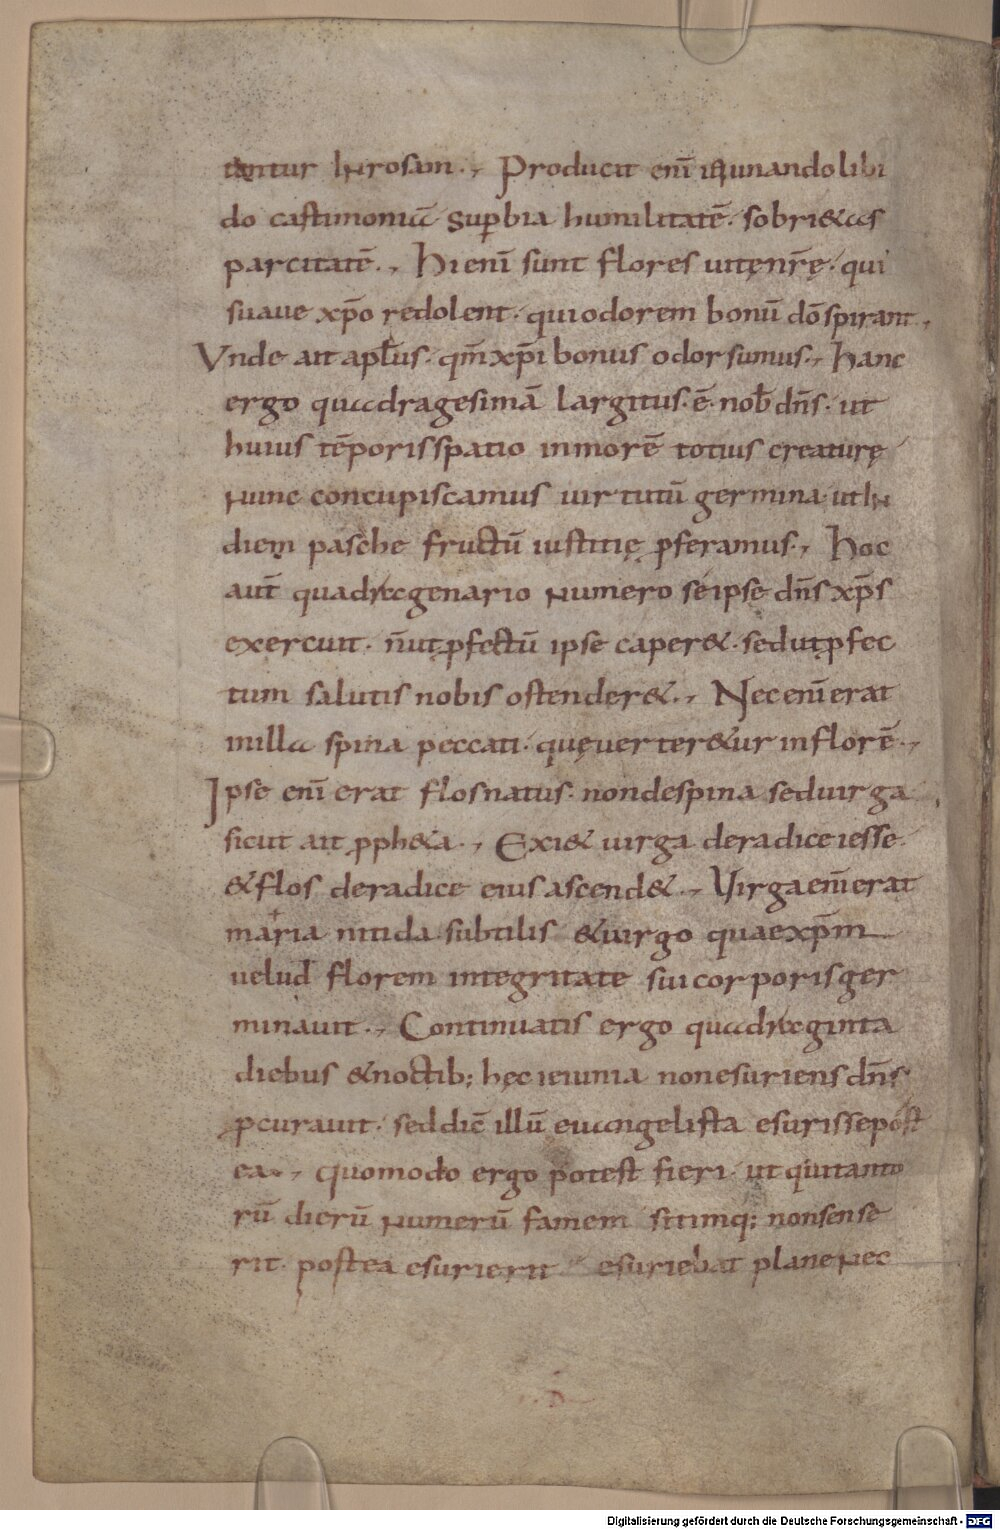 tanturInrosam., Producit eni̅ ieiunando libi
do castimoniu̅ Sup̱bia humilitate̅. sobri&as
parcitate̅., Hi eni̅ sunt flores uitęnr̅ę. qui
suaue xp̅o redolent. qui odorem bonu̅ do̅ spirant.,
Vnde ait apl̅us. qm̅ xp̅i bonus odor sumus., hanc
ergo quadragesima̅ largitus. e̅. nob̅ dn̅s. ut
huius te̅poris spatio inmore̅ totius creaturę
Nunc concupiscamus uirtutu̅ germina. utIN
diem pasche fructu̅ iustitię p̱feramus., Hoc
aut̅ quadragenario Numero se ipse dn̅s xp̅s
exercuit. n̅ ut p̱fectu̅ ipse caper&. sed ut p̱fec
tum salutis nobis ostender&., Nec eni̅ erat
in illa spina peccati. quę uerter&ur in flore̅.,
Ipse eni̅ erat flos natus. non de spina sed uirga
sicut ait p̱ph&a., Exi& uirga de radice iesse.
& flos de radice eius ascend&., Virga eni̅ erat
maria nitida subtilis & uirgo quae xp̅m
uelud florem integritate sui corporis ger
minauit., Continuatis ergo quadraginta
diebus & noctib; hęc ieiunia non esuriens dn̅s
p̱curauit. sed dic̅ illu̅ euangelista esurisse post
ea., Quomodo ergo potest fieri. ut qui tanto
ru̅ dieru̅ Numeru̅ famem sitimq; non sense
rit. postea esurierit esuriebat plane Nec
Digitalisierung gefördert durch die Deutsche Forschungsgemeinschaft - DFG